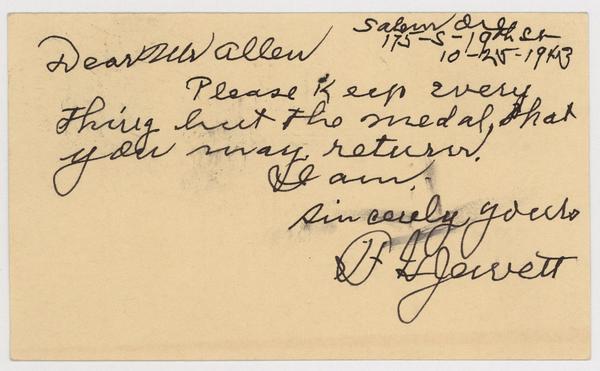 Salem Ore
175-S-19th St
10-25-1943
Dear Mr Allen
Please Keep every
thing but the medal, that
you may return.
I am,
Sincerely yours
P L Jewett